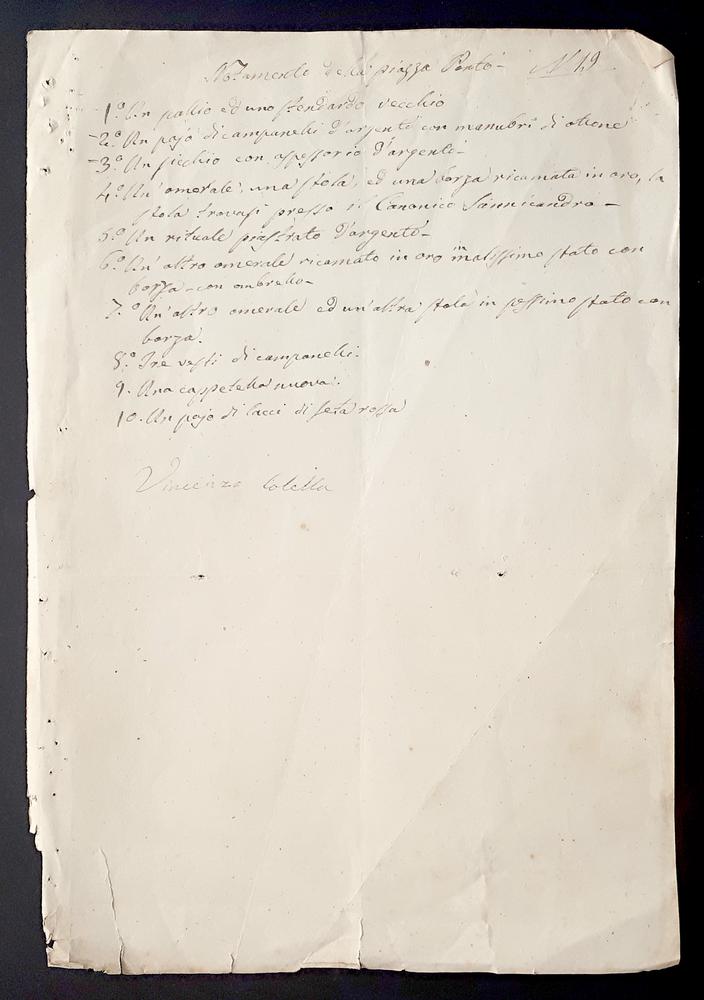 Notamento della piazza Portò - N. 19
1.o Un pallio ed uno stendardo vecchio
2.o Un pajo di campanelli d'argento con manubri di ottone
3.o Un sicchio con aspessorio d'argento -
4.o Un' omerale, una stola, ed una borza ricamata in oro, la
stola trovasi presso il Canonico Sannicandro -
5.o Un rituale piastrato d'argento -
6.o Un' altro omerale ricamato in oro in malissimo stato con
borza - con ombrello -
7.o Un' altro omerale ed un' altra stola in pessimo stato con
borza.
8.o Tre vesti di campanelli.
9. Una cappetella nuova.
10. Un pajo di lacci di seta rossa
Vincenzo Colella